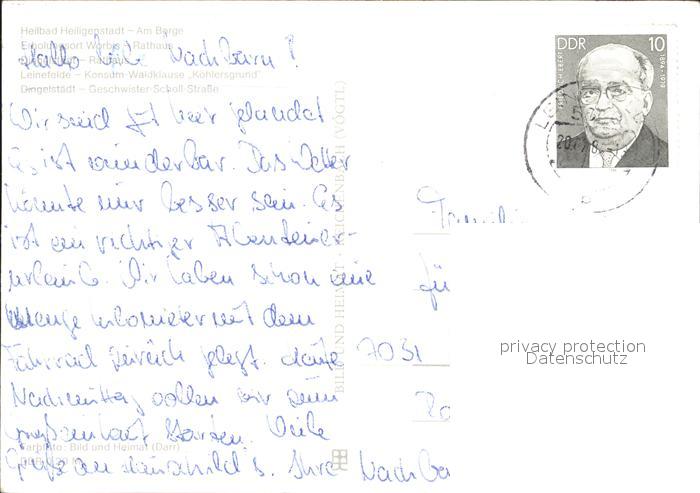 Heilbad Heiligenstadt – Am Berge
Erholungsort Worbis – Rathaus
– Rathaus
Leinefelde – Konsum-Waldklause „Köhlersgrund"
Dingelstädt – Geschwister-Scholl-Straße
Hallo liebe Nachbarn!
Wir sind gut hier gelandet
Es ist wunderbar. Das Wetter
könnte nur besser sein. Es
ist ein richtiger Abenteuer-
urlaub. Wir haben schon eine
Menge Kilometer mit dem
Fahrrad gelegt. Heute
Nachmittag wollen wir zum
starten. Viele
Grüße an s. Ihre Nachba
Farbfoto: Bild und Heimat (Darr)
BILD UND HEIMAT REICHENBACH (VOGTL)
DDR 10
Familie
für
7031
privacy protection
Datenschutz